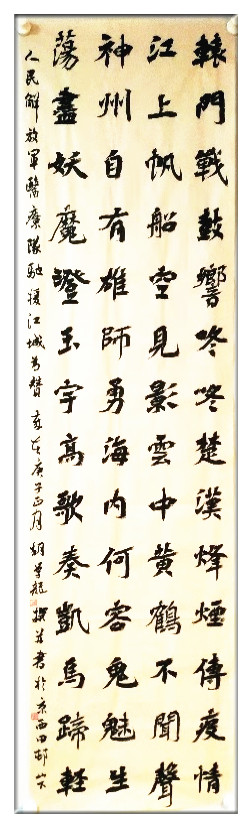 轅門戰鼓響咚咚楚漢烽煙傳疫情
江上帆船空見影雲中黃鶴不聞聲
神州自有雄師勇海內何容鬼魅生
蕩盡妖魔澄玉宇高歌奏凱馬蹄輕
人民解放軍醫療隊馳援江城為贊 歲在庚子正月 胡 撰並書於京西